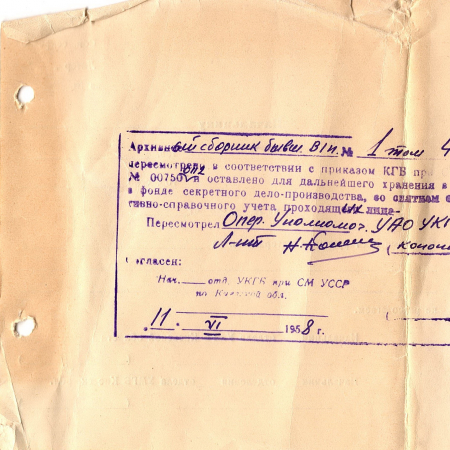 Архивный сборник бывш. В/п. № 1 том 4
пересмотрен в соответствии с приказом КГБ при
№ 00750 и оставлено для дальнейшего хранения в
в фонде секретного дело-производства, со снятием с
тивно-справочного учета проходящих лиц
Пересмотрел Опер. Уполномоч. УАО УКГ
Л-нт
Согласен:
Нач. ____ отд. УКГБ при СМ УССР
по Киевской обл.
„ 11 „ VI 1958 г.